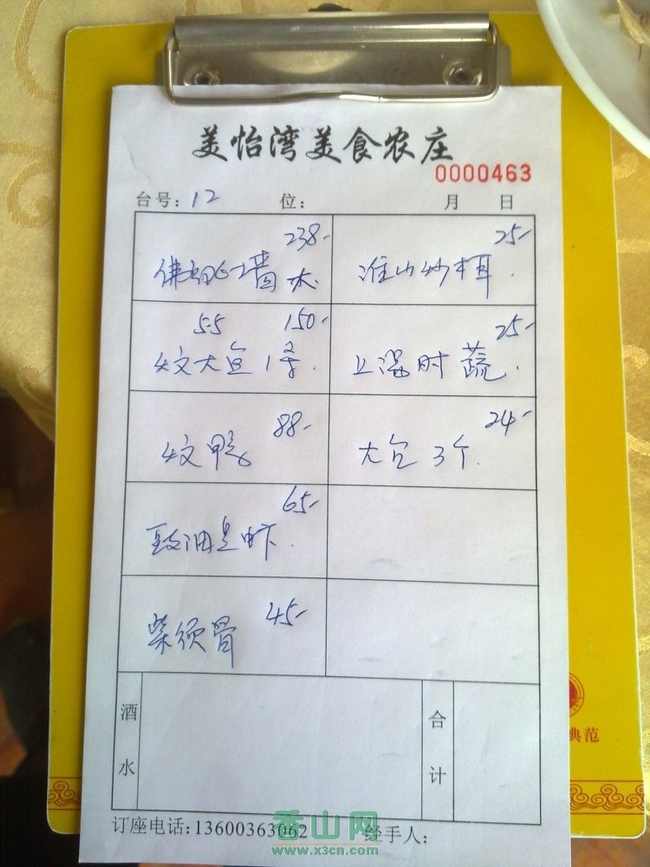 美怡湾美食农庄
0000463
台号: 12 位: 月 日
238-
佛跳墙 大
25-
淮山炒木耳.
55 150-
大鱼1条.
25-
上汤时蔬.
88-
鸭
24-
大包 3个.
65-
豉油皇虾.
45-
骨
酒水
合计
订座电话:13600363062 经手人:
香山网
www.x3cn.com
典范